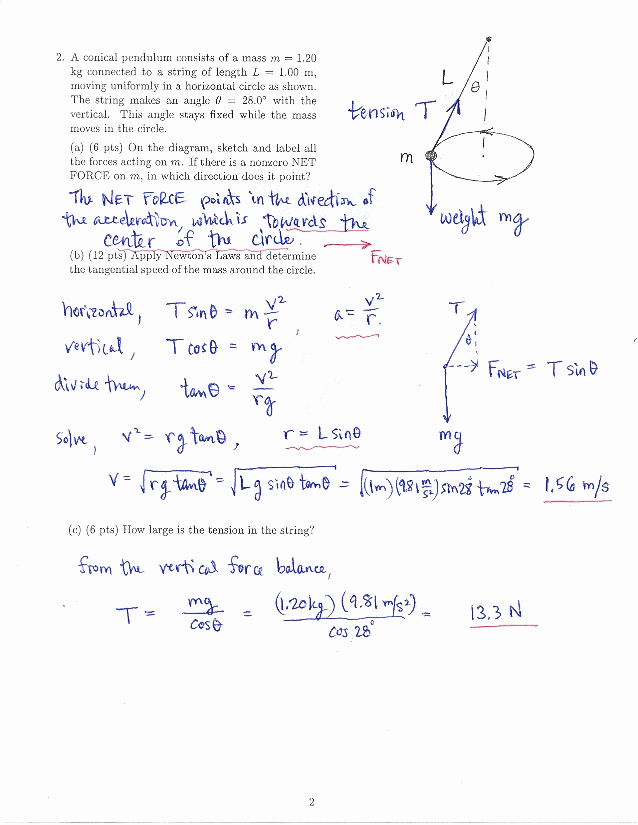 2. A conical pendulum consists of a mass m = 1.20
kg connected to a string of length L = 1.00 m,
moving uniformly in a horizontal circle as shown.
The string makes an angle θ = 28.0° with the
vertical. This angle stays fixed while the mass
moves in the circle.
L
θ
tension T
m
weight mg
(a) (6 pts) On the diagram, sketch and label all
the forces acting on m. If there is a nonzero NET
FORCE on m, in which direction does it point?
The NET FORCE points in the direction of
the acceleration, which is towards the
center of the circle.
FNET
(b) (12 pts) Apply Newton's Laws and determine
the tangential speed of the mass around the circle.
horizontal, T sinθ = m v²/r , a = v²/r.
vertical, T cosθ = mg
divide them, tanθ = v²/rg
T
θ
FNET = T sinθ
mg
solve, v² = rg tanθ, r = L sinθ
V = √rg tanθ = √Lg sinθ tanθ = √(1m)(9.81 m/s²) sin28° tan28° = 1.56 m/s
(c) (6 pts) How large is the tension in the string?
from the vertical force balance,
T = mg/cosθ = (1.20kg)(9.81 m/s²)/cos 28° = 13.3 N
2